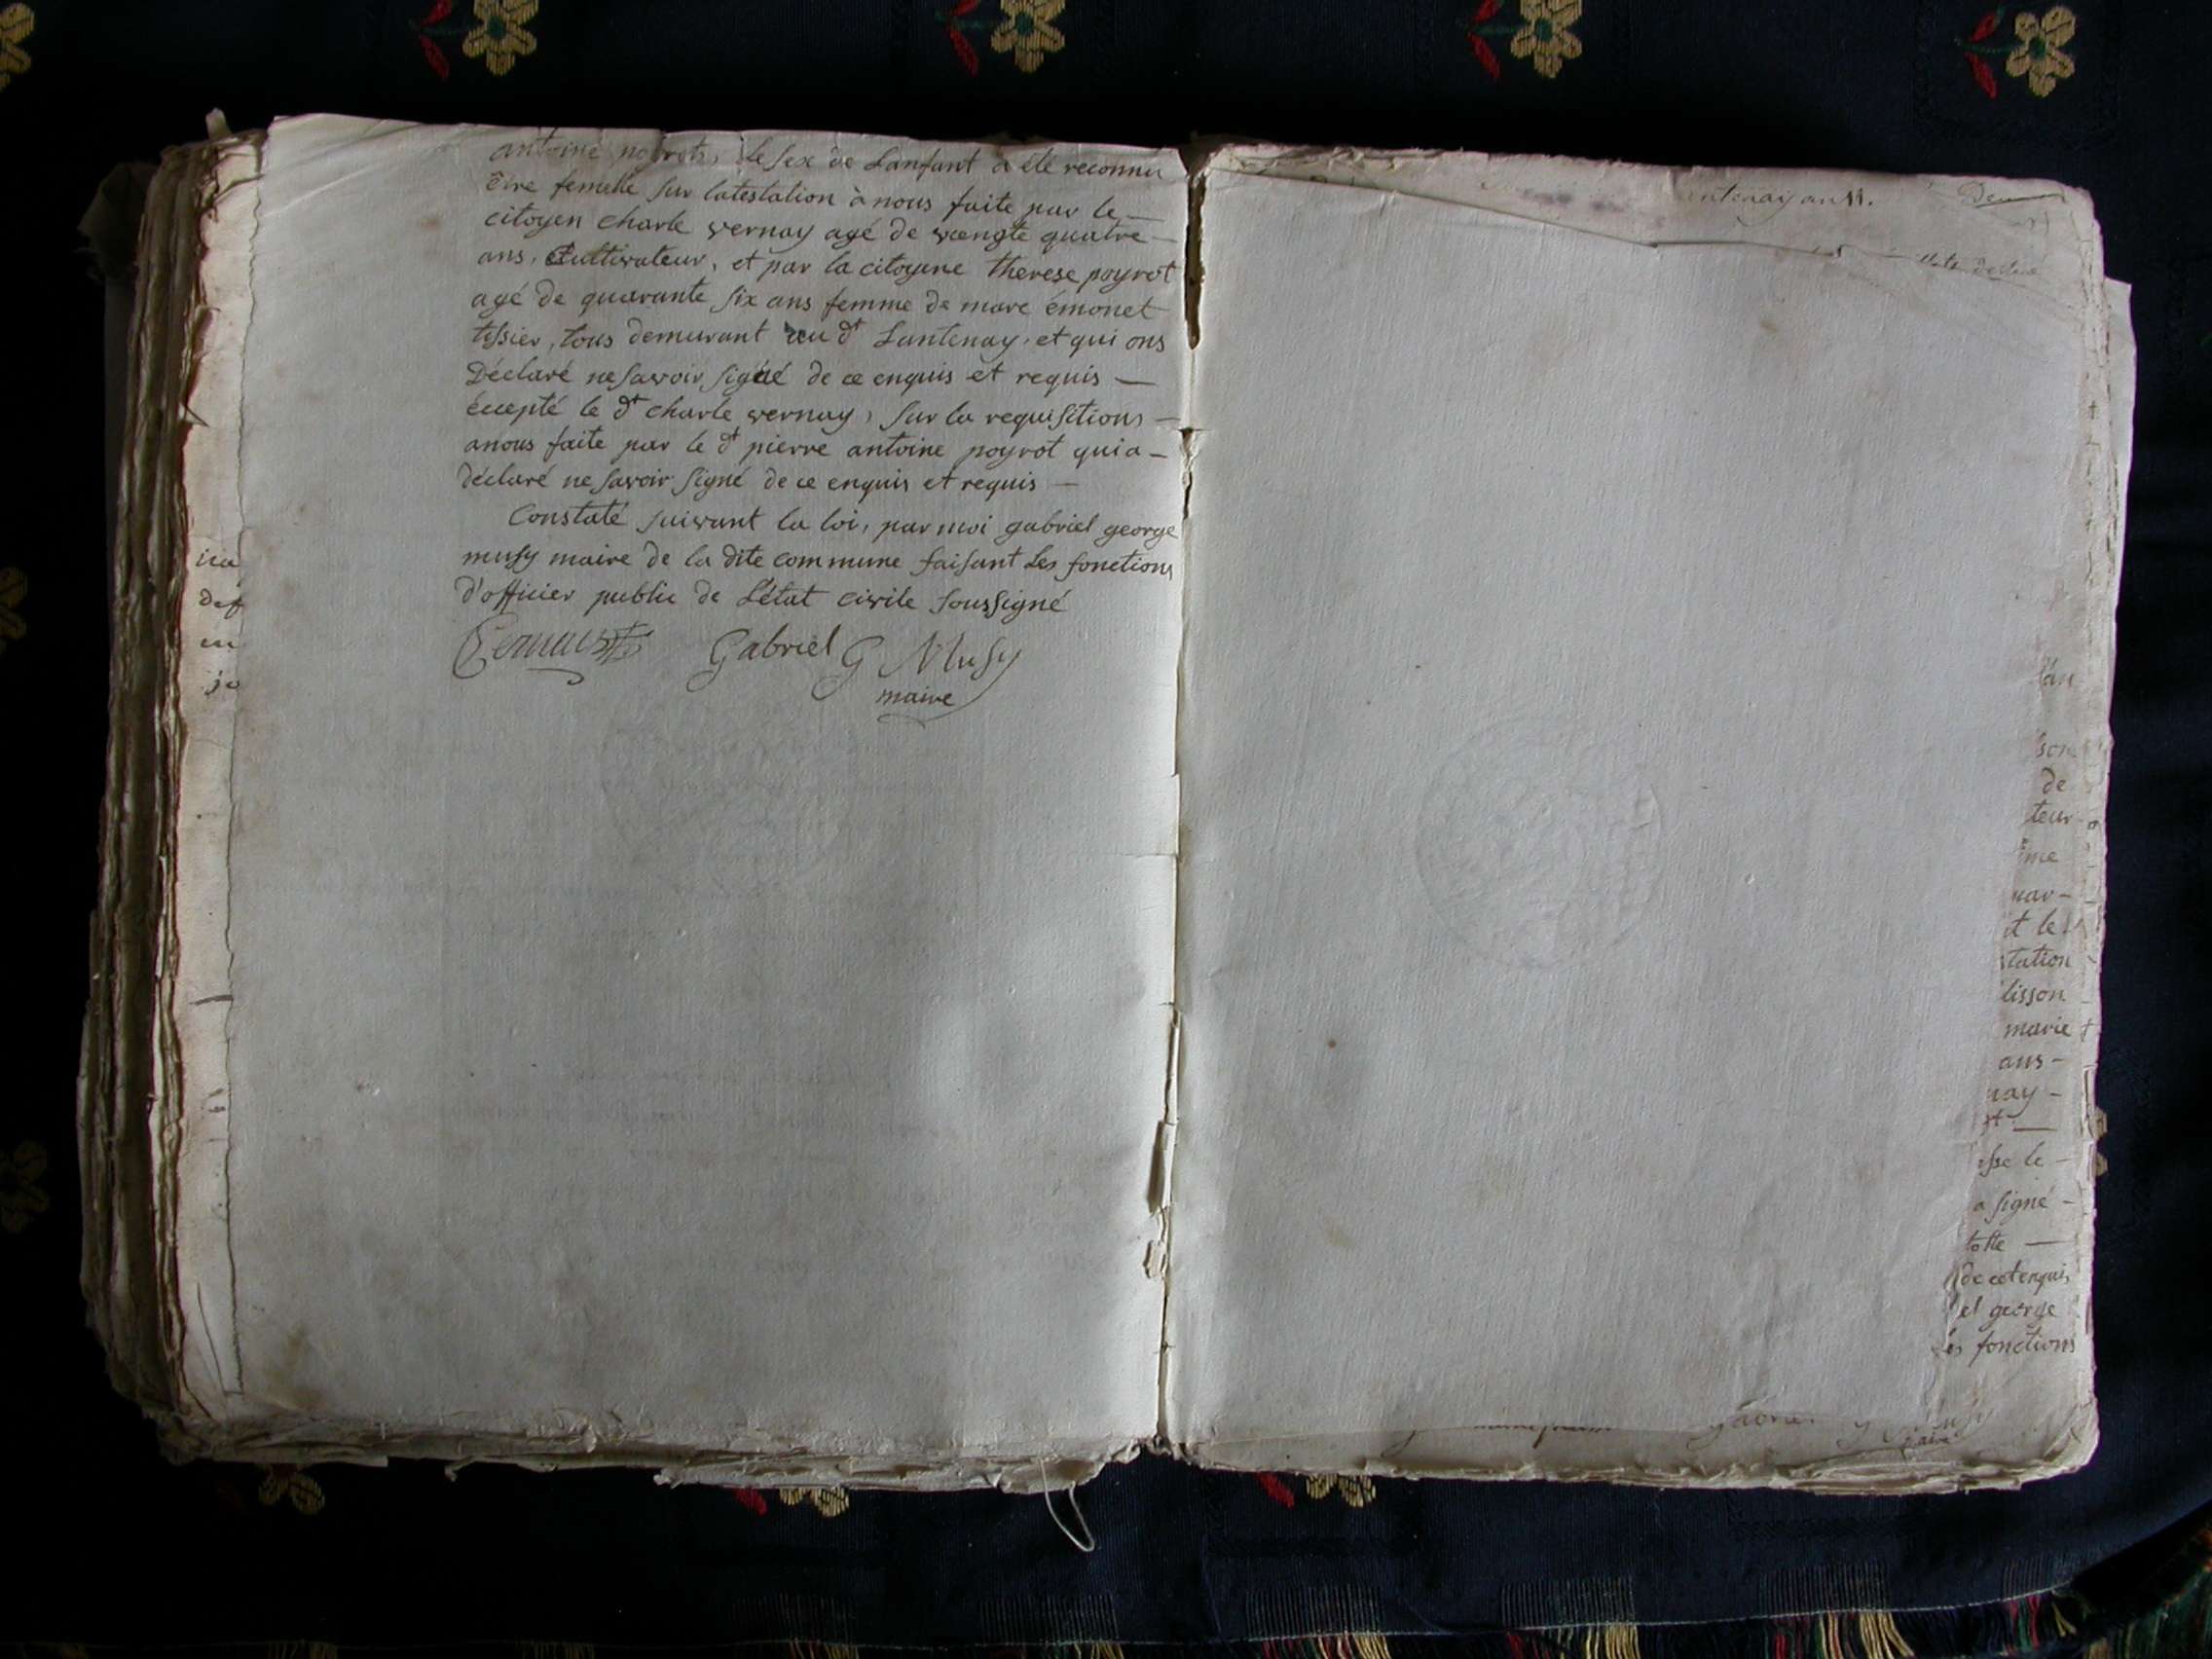 antoine poyrot, le sex de Lanfant a été reconnu
être femelle sur latestation à nous faite par le —
citoyen charle vernay agé de veengte quatre —
ans, Cultivateur, et par la citoyene therese poyrot
agé de quarante six ans femme de marc émonet
tissier, tous demurant au dt Lantenay, et qui ons
Déclaré ne savoir signé de ce enquis et requis —
éccepté le dt charle vernay, sur la requisitions —
anous faite par le dt pierre antoine poyrot qui a —
déclaré ne savoir signé de ce enquis et requis —
Constaté suivant la loi, par moi gabriel george
musy maire de la dite commune faisant Les fonctions
d'officier public de L'état civile soussigné
Gabriel G Musy
maire
ina
def
en
je
antenay an 11.
l'an
son
de
teur
ime
par —
it le
tation
lisson
marie
ans —
nay —
sse le —
a signé —
totte —
de cet enquis
el george
Les fonctions